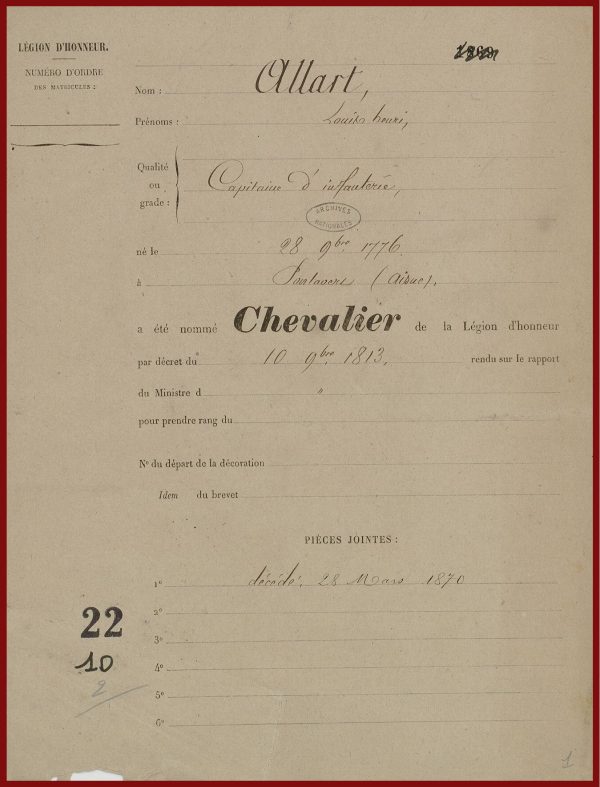 LÉGION D'HONNEUR.
NUMÉRO D'ORDRE
DES MATRICULES :
Nom : Allart,
Prénoms : Louis henri,
Qualité
ou
grade :
Capitaine d'infanterie,
ARCHIVES
NATIONALES
né le 28 9bre 1776.
à Pontavert (Aisne).
a été nommé Chevalier de la Légion d'honneur
par décret du 10 9bre 1813. rendu sur le rapport
du Ministre d "
pour prendre rang du
No du départ de la décoration
Idem du brevet
PIÈCES JOINTES :
1o décédé. 28 Mars 1870
2o
22
3o
10
4o
2
5o
6o
1